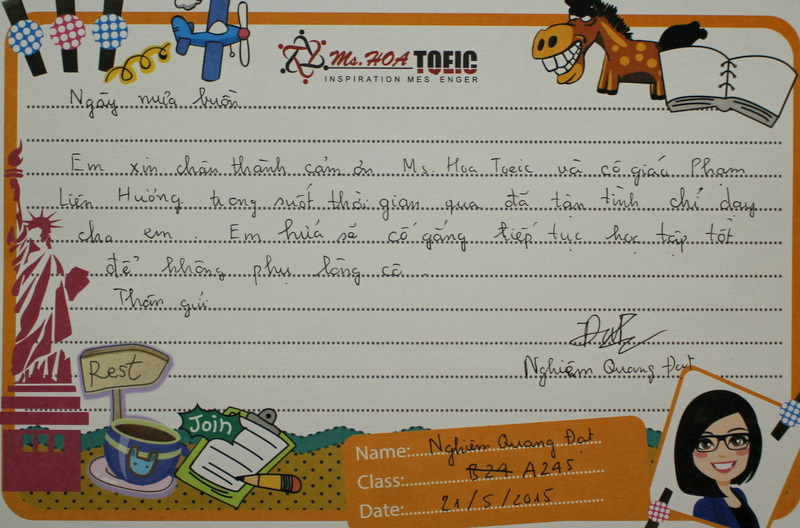 Ms.HOA TOEIC
INSPIRATION MES ENGER
Ngày mưa buồn
Em xin chân thành cảm ơn Ms. Hoa Toeic và cô giáo Phạm
Liên Hương trong suốt thời gian qua đã tận tình chỉ dạy
cho em. Em hứa sẽ cố gắng tiếp tục học tập tốt
để không phụ lòng cô.
Thân gửi
Nghiêm Quang Đạt
Rest
Join
Name: Nghiêm Quang Đạt
Class: B24 A245
Date: 21/5/2015